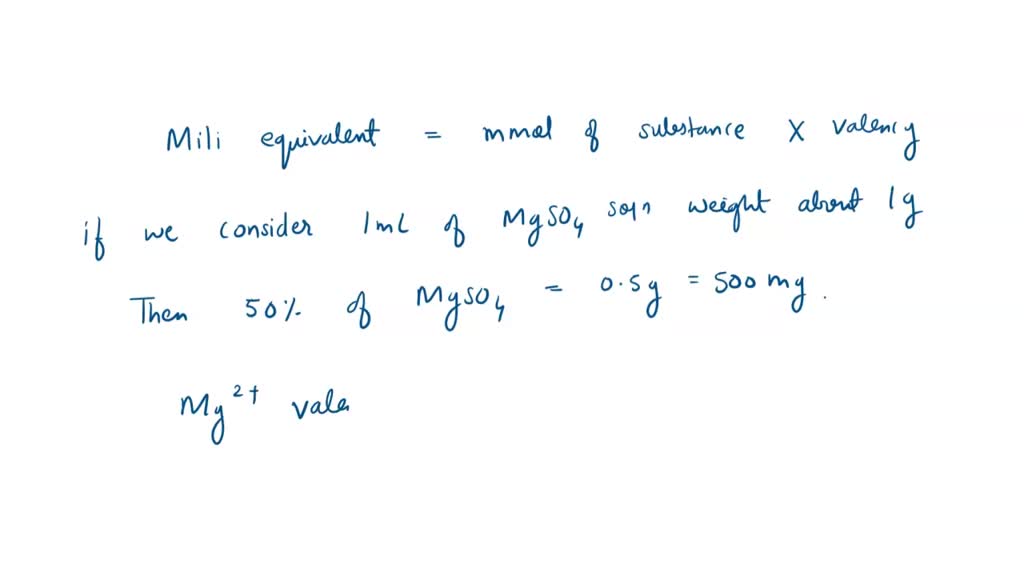 Mili equivalent = mmol of substance X valency
if we consider 1mL of MgSO4 soln weight about 1g
Then 50% of MgSO4 = 0.5g = 500 mg.
Mg2+ vale